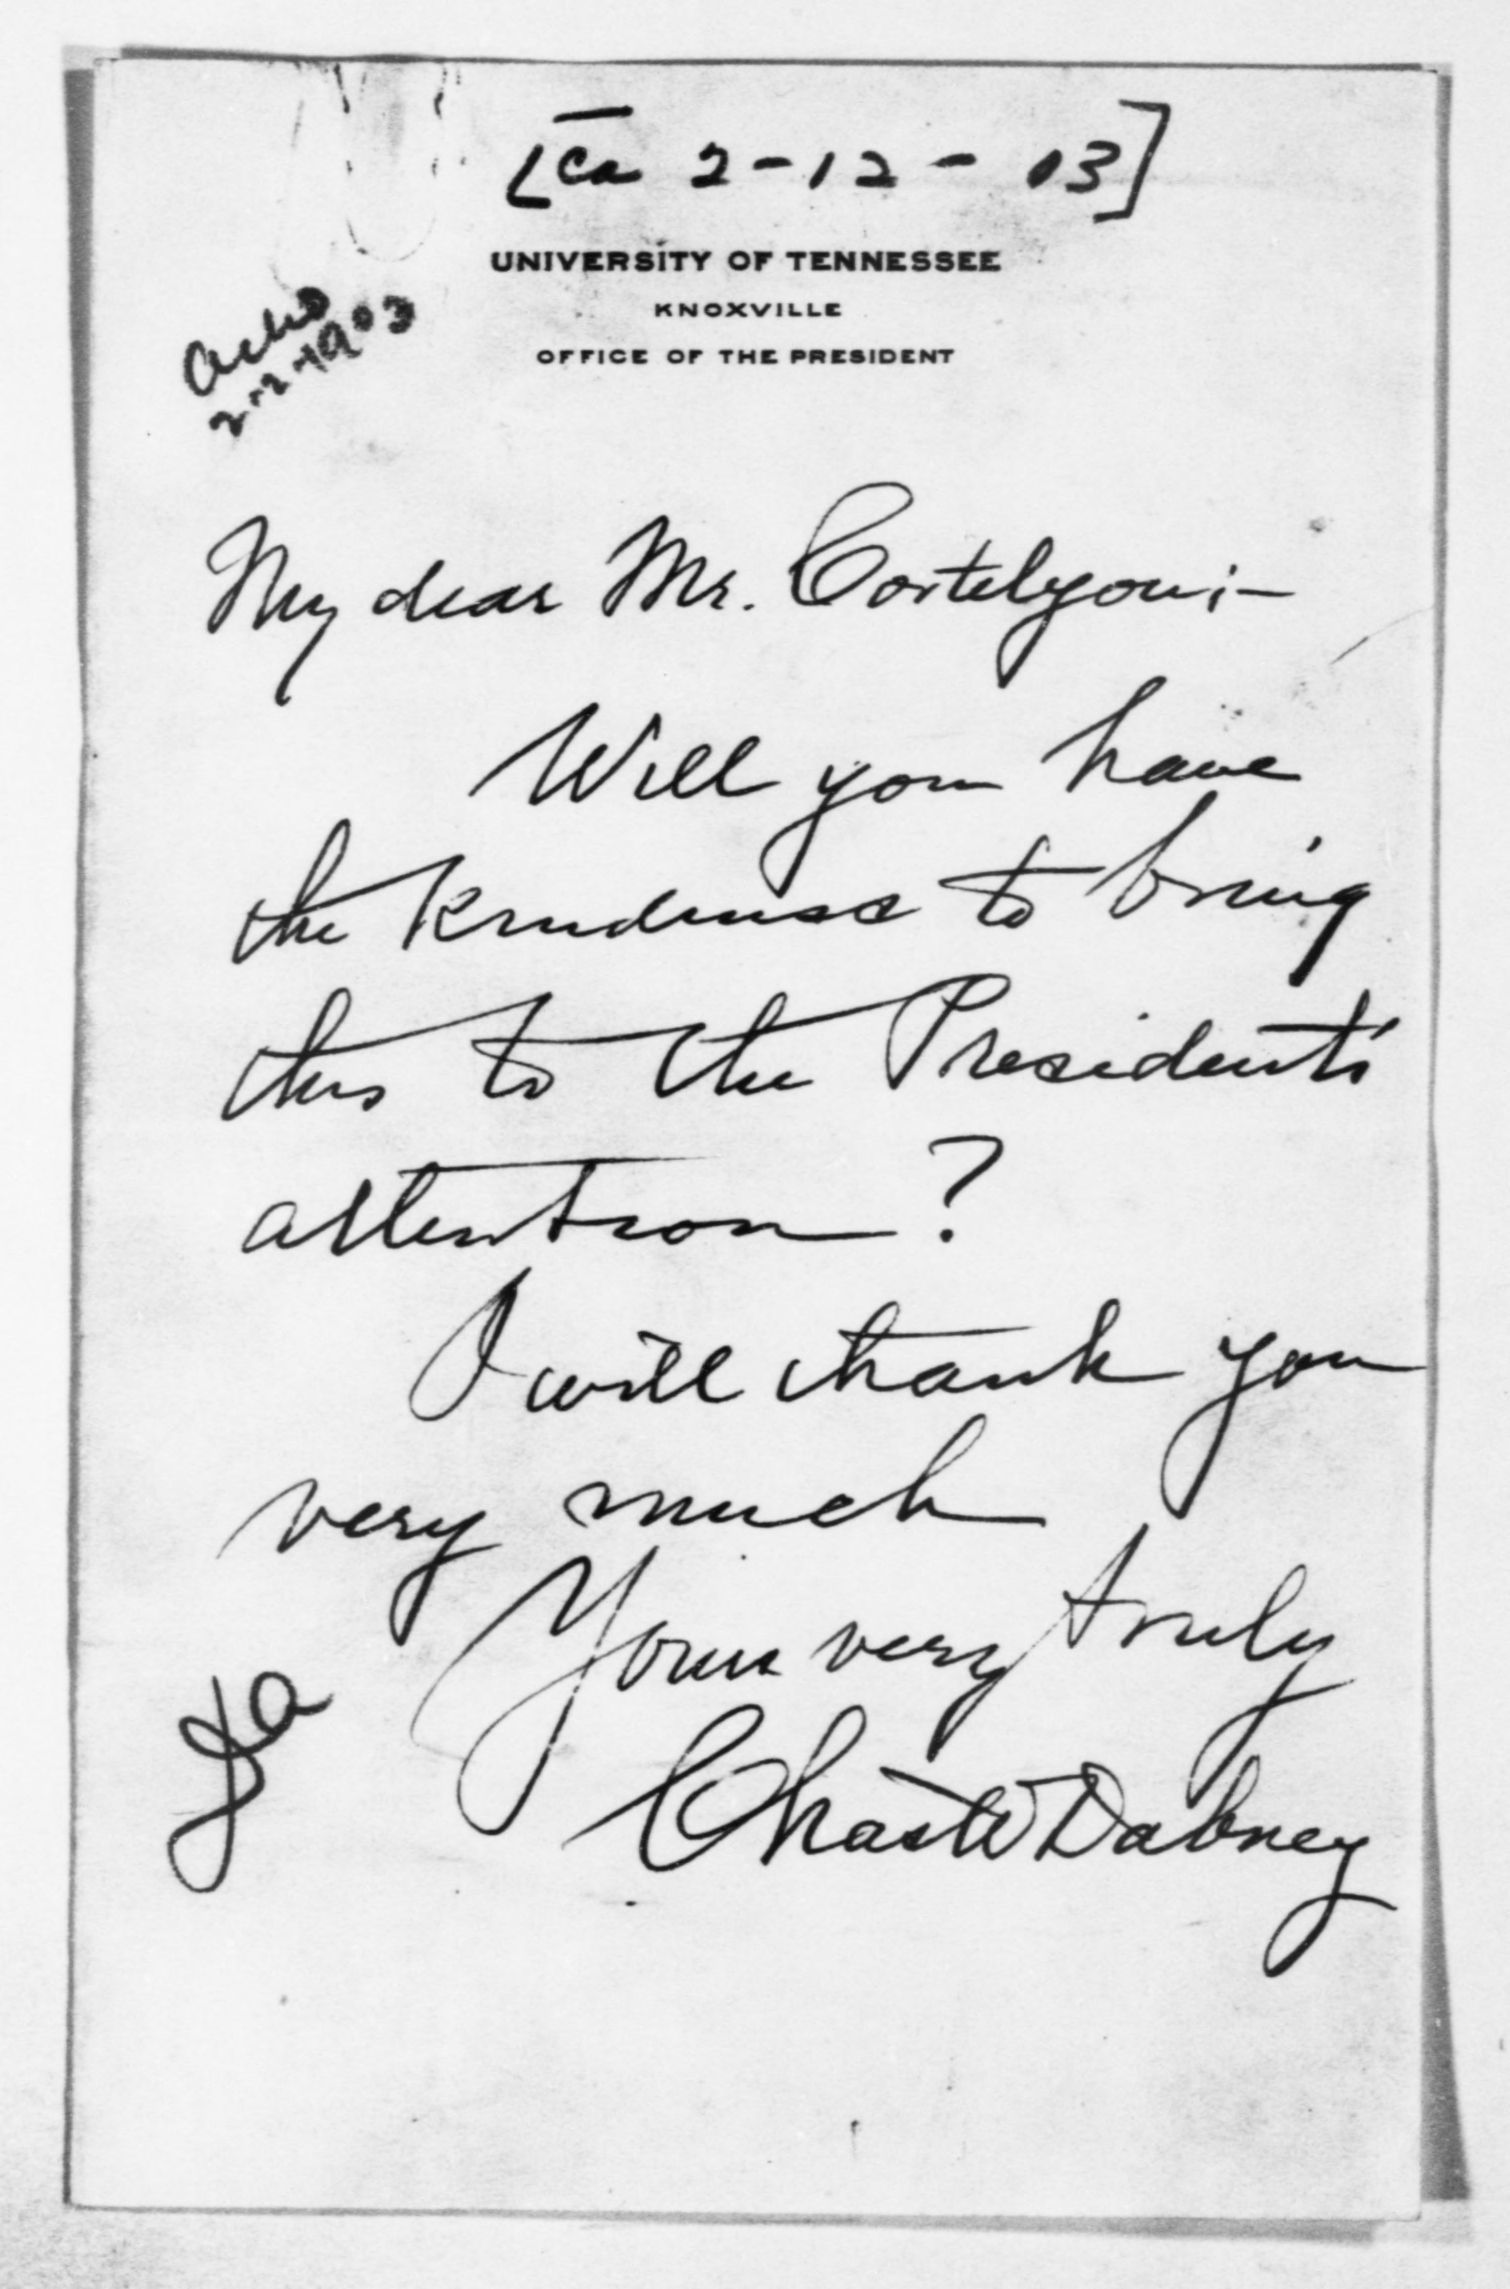 [ca 2-12-03]
UNIVERSITY OF TENNESSEE
KNOXVILLE
OFFICE OF THE PRESIDENT
Ackd
2-2-1903
My dear Mr. Cortelyou:-
Will you have
the kindness to bring
this to the President's
attention?
I will thank you
very much
Yours very truly
Chas W Dabney